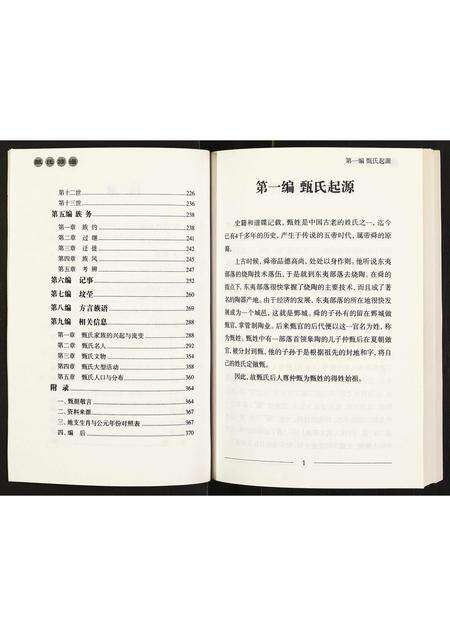 甄氏族谱
第十二世 226
第十三世 238
第五编 族 务 238
第一章 族 约 238
第二章 过 继 241
第三章 迁 徙 242
第四章 族 风 245
第五章 考 辨 247
第六编 记事 252
第七编 坟茔 260
第八编 方言族语 269
第九编 相关信息 288
第一章 甄氏家族的兴起与流变 288
第二章 甄氏名人 292
第三章 甄氏文物 354
第四章 甄氏大型活动 358
第五章 甄氏人口与分布 364
附 录 364
一、甄挺敬言 364
二、资料来源 364
三、地支生肖与公元年份对照表 367
四、编 后 370
第一编 甄氏起源
第一编 甄氏起源
史籍和谱牒记载，甄姓是中国古老的姓氏之一，迄今
已有4千多年的历史，产生于传说的五帝时代，属帝舜的后
裔。
上古时候，舜帝品德高尚，处处以身作则，他听说东夷
部落的烧陶技术落伍，于是就到东夷部落去烧陶。在舜的
指点下，东夷部落很快掌握了烧陶的主要技术，而且成了著
名的陶器产地。由于经济的发展，东夷部落的所在地很快发
展成为一个城邑，这就是鄄城。舜的子孙有的留在鄄城做
甄官，掌管制陶业。后来甄官的后代便以这一官名为姓，称
为甄姓。甄姓中有一部落首领皋陶的儿子仲甄后在夏朝做
官，被分封到甄，他的子孙于是根据祖先的封地和字，将自
己的姓氏定做甄。
因此，故甄氏后人尊仲甄为甄姓的得姓始祖。
1